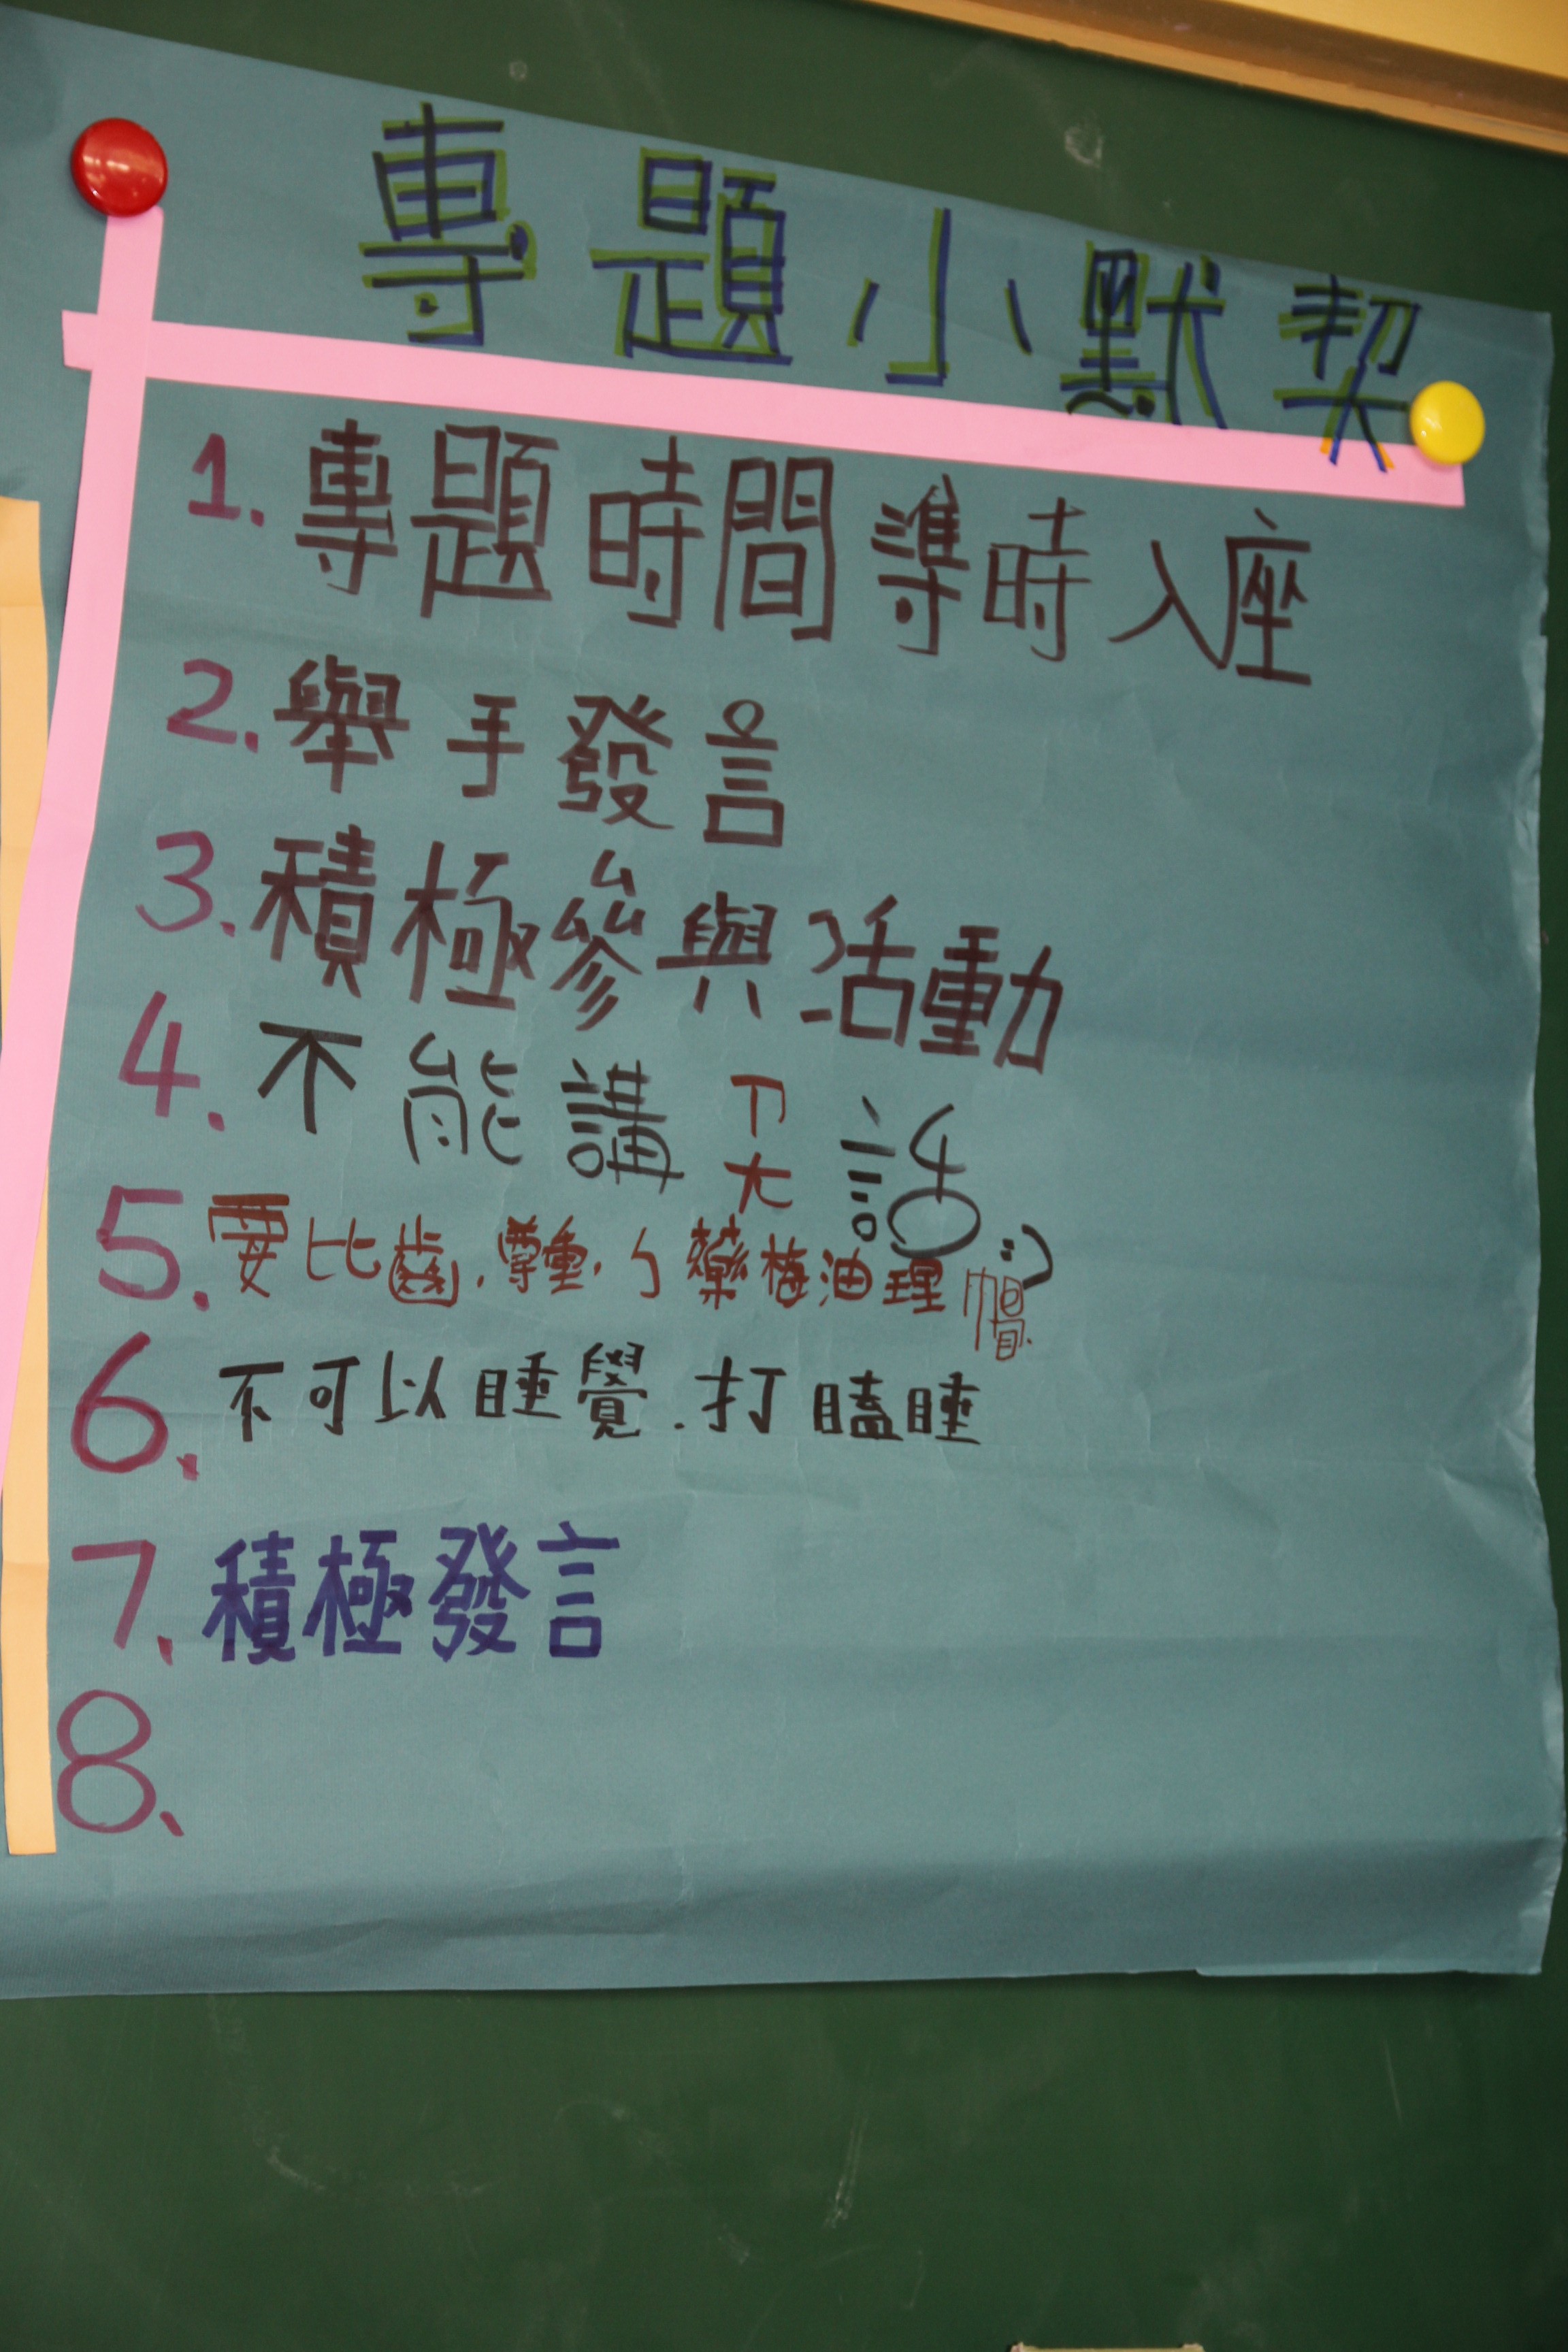 專題小默契
1. 專題時間準時入座
2. 舉手發言
3. 積極參與活動
4. 不能講ㄗㄤ話 :)
5. 要比齒.尊重.ㄅ藥梅油理帽.
6. 不可以睡覺.打瞌睡
7. 積極發言
8.